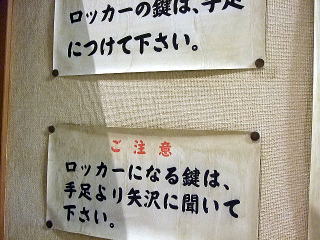 ロッカーの鍵は、手足
につけて下さい。
ご注意
ロッカーになる鍵は、
手足より矢沢に聞いて
下さい。